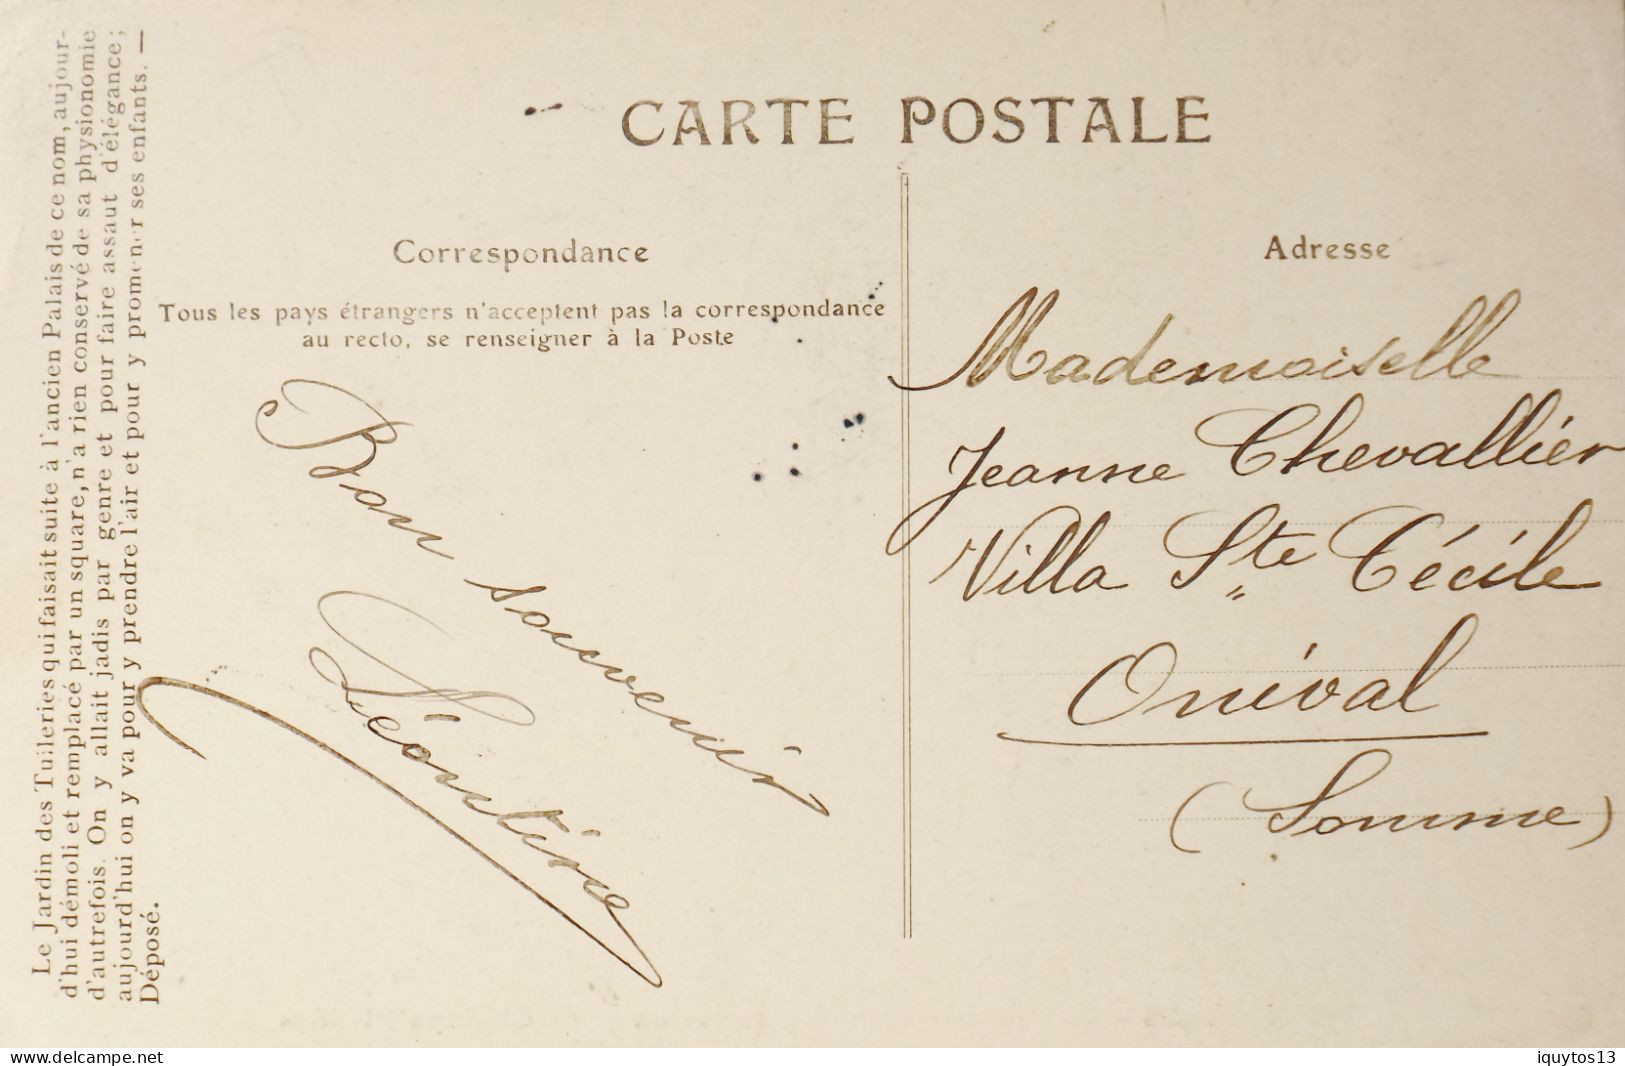 CARTE POSTALE
Correspondance
Tous les pays étrangers n'acceptent pas la correspondance
au recto, se renseigner à la Poste
Bon souvenir
Léontine
Adresse
Mademoiselle
Jeanne Chevallier
Villa Ste Cécile
Onival
(Somme)
Le Jardin des Tuileries qui faisait suite à l'ancien Palais de ce nom, aujour-
d'hui démoli et remplacé par un square, n'a rien conservé de sa physionomie
d'autrefois. On y allait jadis par genre et pour faire assaut d'élégance;
aujourd'hui on y va pour y prendre l'air et pour y promener ses enfants. —
Déposé.
www.delcampe.net
iquytos13